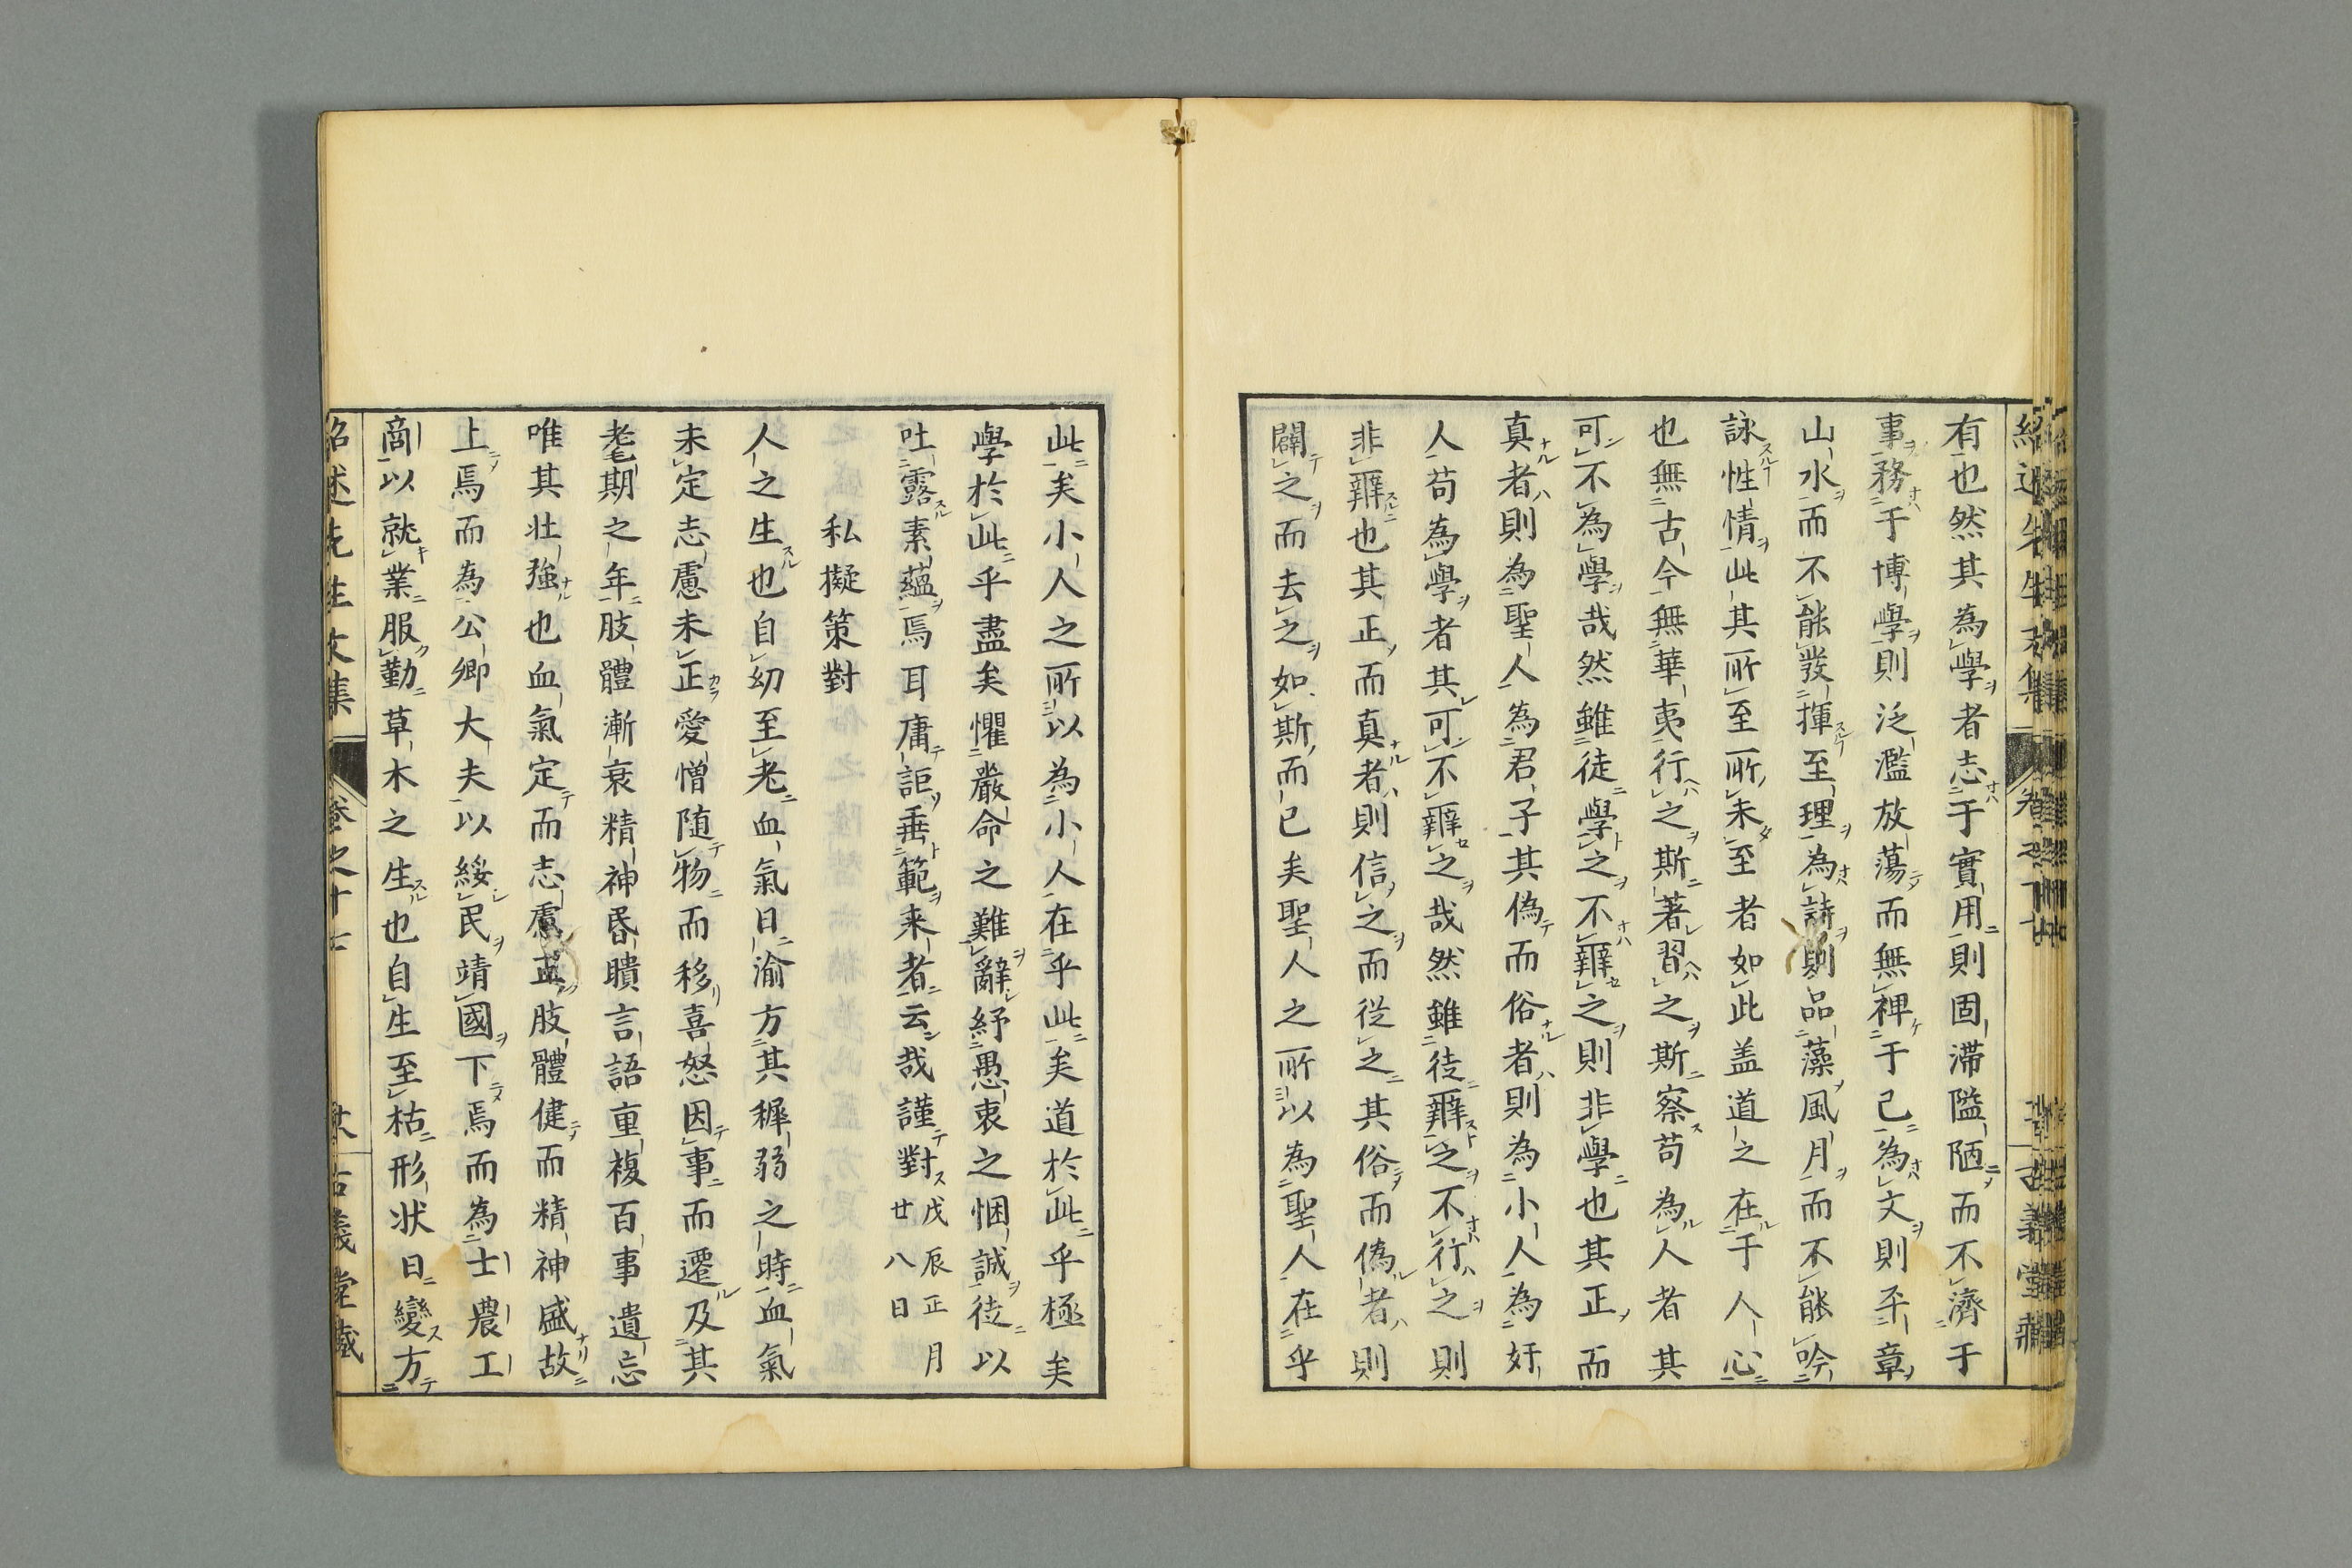 有也然其為學者志于實用則固滞隘陋而不濟于
事務于博學則泛濫放蕩而無裨于己為文則平章
山水而不能發揮至理為詩則品藻風月而不能吟
詠性情此其所至所未至者如此盖道之在于人心
也無古今無華夷行之斯著習之斯察苟為人者其
可不為學哉然雖徒學之不辨之則非學也其正而
真者則為聖人為君子其偽而俗者則為小人為奸
人苟為學者其可不辨之哉然雖徒辨之不行之則
非辨也其正而真者則信之而従之其俗而偽者則
闢之而去之如斯而已矣聖人之所以為聖人在乎
此矣小人之所以為小人在乎此矣道於此乎極矣
學於此乎盡矣懼嚴命之難辭紓愚衷之悃誠徒以
吐露素蘊焉耳庸詎垂範来者云哉謹對 戊辰正月廿八日
私擬策對
人之生也自幼至老血氣日渝方其穉弱之時血氣
未定志慮未正愛憎随物而移喜怒因事而遷及其
耄期之年肢體漸衰精神昬瞶言語重複百事遺忘
唯其壮強也血氣定而志慮正肢體健而精神盛故
上焉而為公卿大夫以綏民靖國下焉而為士農工
商以就業服勤草木之生也自生至枯形状日變方
紹述先生文集 卷之十七 古義堂蔵